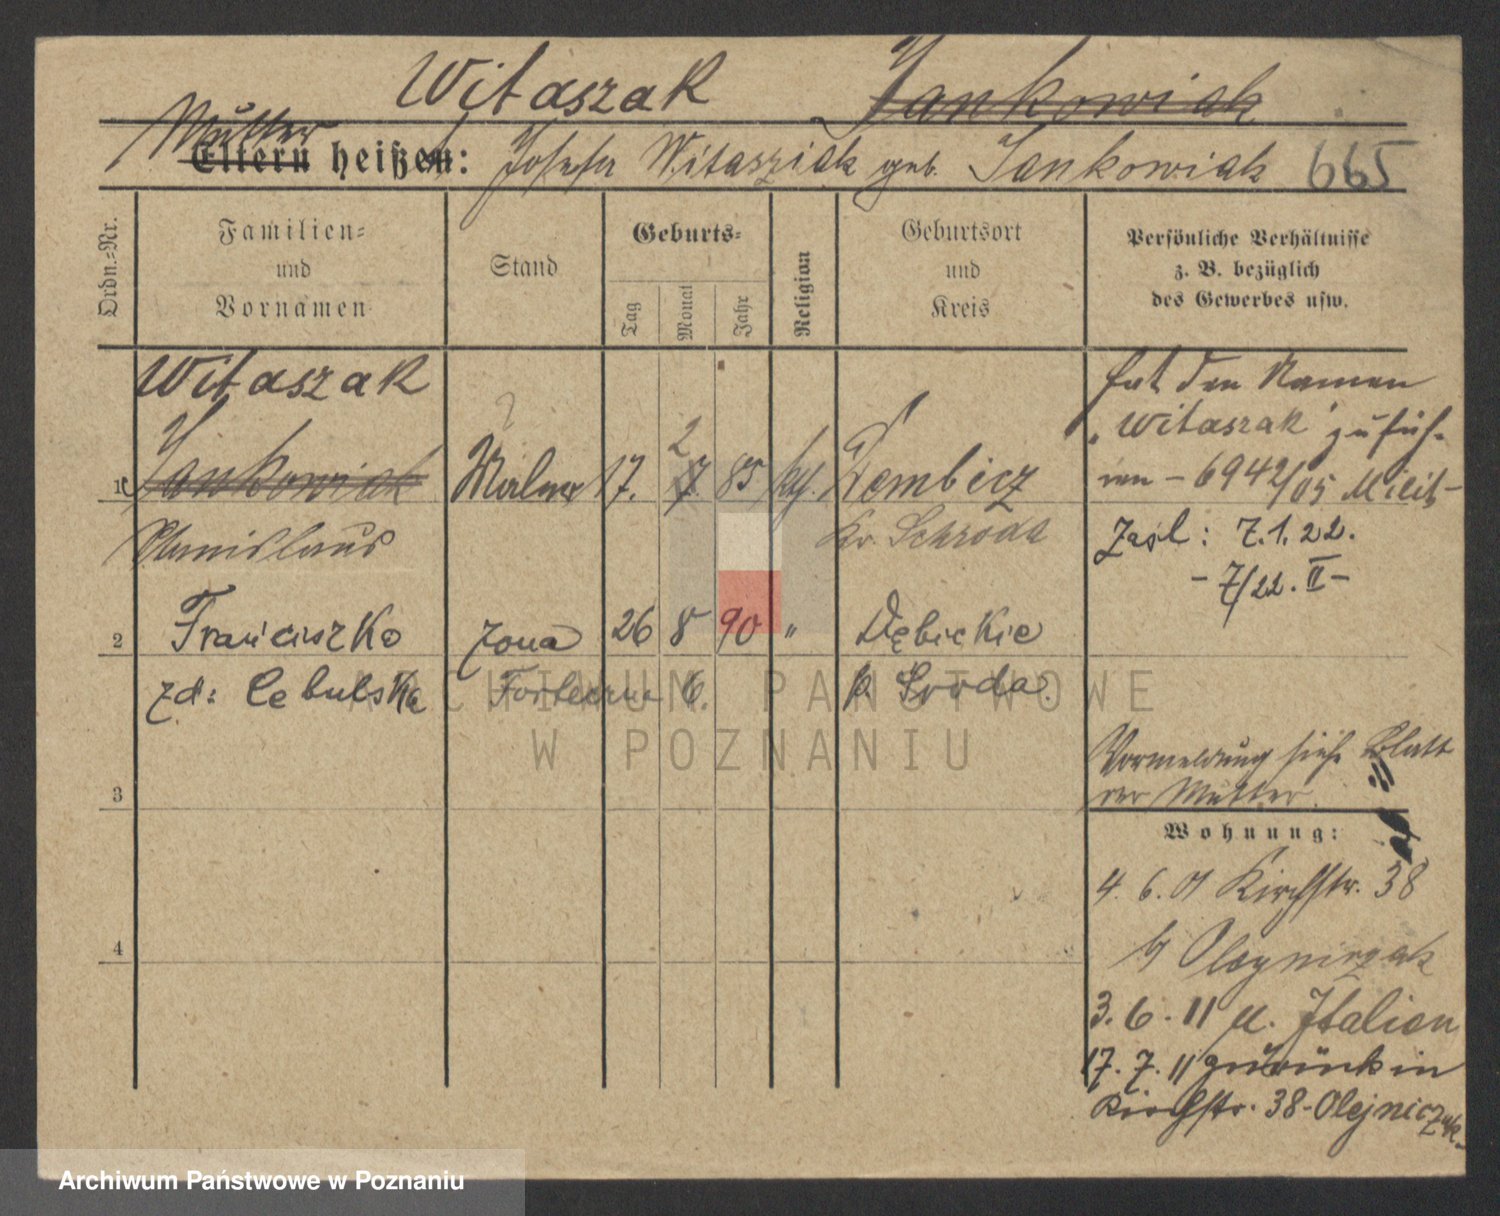 Witaszak Jankowiak
Mutter
Eltern heißen: Josefa Witasziak geb. Jankowiak 665
Ordn.-Nr.
Familien-
und
Vornamen
Stand
Geburts-
Tag
Monat
Jahr
Religion
Geburtsort
und
Kreis
Persönliche Verhältnisse
z. B. bezüglich
des Gewerbes usw.
Witaszak
?
1 Jankowiak Maler 17. 7 2 85 kth. Dembicz
Stanislaus Kr. Schroda
2 Franciszka żona 26 8 90 " Dębickie
zd: Cebulska 6. p. Sroda
3
4
hat den Namen
"Witaszak" zu füh-
ren - 6942/05 Milit -
Zasl: 7.1.22.
- 7/22. II -
Vormeldung siehe Blatt
der Mutter.
Wohnung:
4. 6. 01 Kirchstr. 38
b/ Olejniczak
3. 6. 11 n. Italien
17. 7. 11 zurück in
Kirchstr. 38 - Olejniczak.
ARCHIWUM PAŃSTWOWE
W POZNANIU
Archiwum Państwowe w Poznaniu